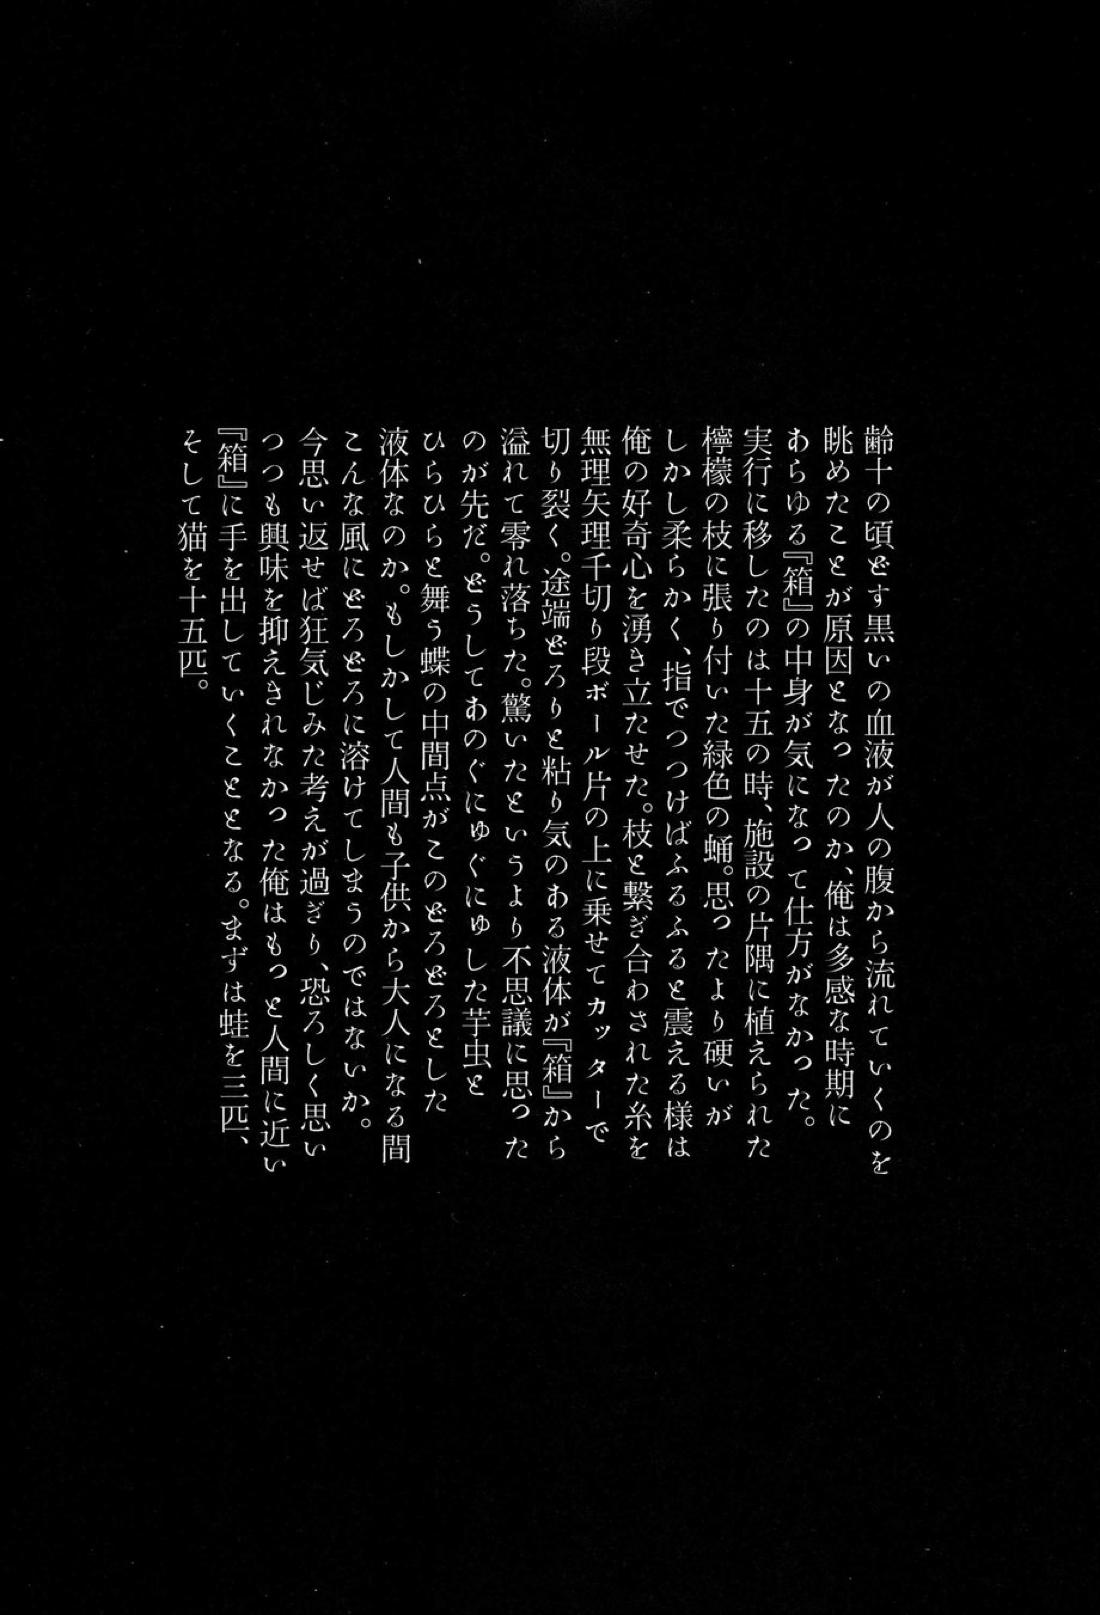 齢十の頃どす黒いの血液が人の腹から流れていくのを
眺めたことが原因となったのか、俺は多感な時期に
あらゆる『箱』の中身が気になって仕方がなかった。
実行に移したのは十五の時、施設の片隅に植えられた
檸檬の枝に張り付いた緑色の蛹。思ったより硬いが
しかし柔らかく、指でつつけばふるふると震える様は
俺の好奇心を湧き立たせた。枝と繋ぎ合わされた糸を
無理矢理千切り段ボール片の上に乗せてカッターで
切り裂く。途端どろりと粘り気のある液体が『箱』から
溢れて零れ落ちた。驚いたというより不思議に思った
のが先だ。どうしてあのぐにゅぐにゅした芋虫と
ひらひらと舞う蝶の中間点がこのどろどろとした
液体なのか。もしかして人間も子供から大人になる間
こんな風にどろどろに溶けてしまうのではないか。
今思い返せば狂気じみた考えが過ぎり、恐ろしく思い
つつも興味を抑えきれなかった俺はもっと人間に近い
『箱』に手を出していくこととなる。まずは蛙を三匹、
そして猫を十五匹。